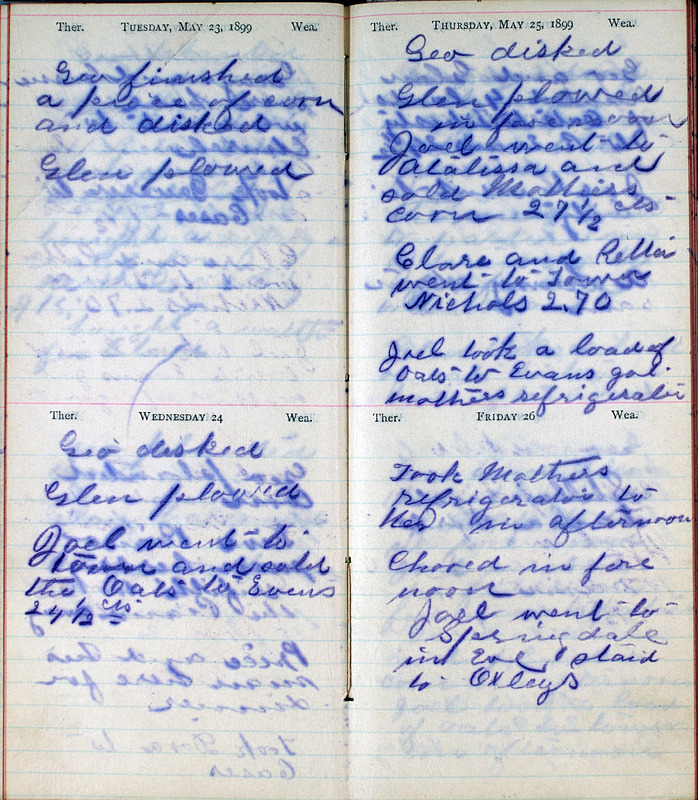 Ther. TUESDAY, MAY 23, 1899 Wea.
Geo finished
a piece of corn
and disked
Glen plowed
Ther. WEDNESDAY 24 Wea.
Geo disked
Glen plowed
Joel went to
town and sold
the Oats to Evans
24 1/2 cts
Ther. THURSDAY, MAY 25, 1899 Wea.
Geo disked
Glen plowed
in forenoon
Joel went to
Atalissa and
sold Mothers
corn 27 1/2 cts
Clara and Retta
went to Town
Nichols 2.70
Joel took a load of
Oats to Evans got
mothers refrigerator
Ther. FRIDAY 26 Wea.
Took Mothers
refrigerator to
her in afternoon
Chored in fore
noon
Joel went to
Springdale
in Eve staid
to Oxleys